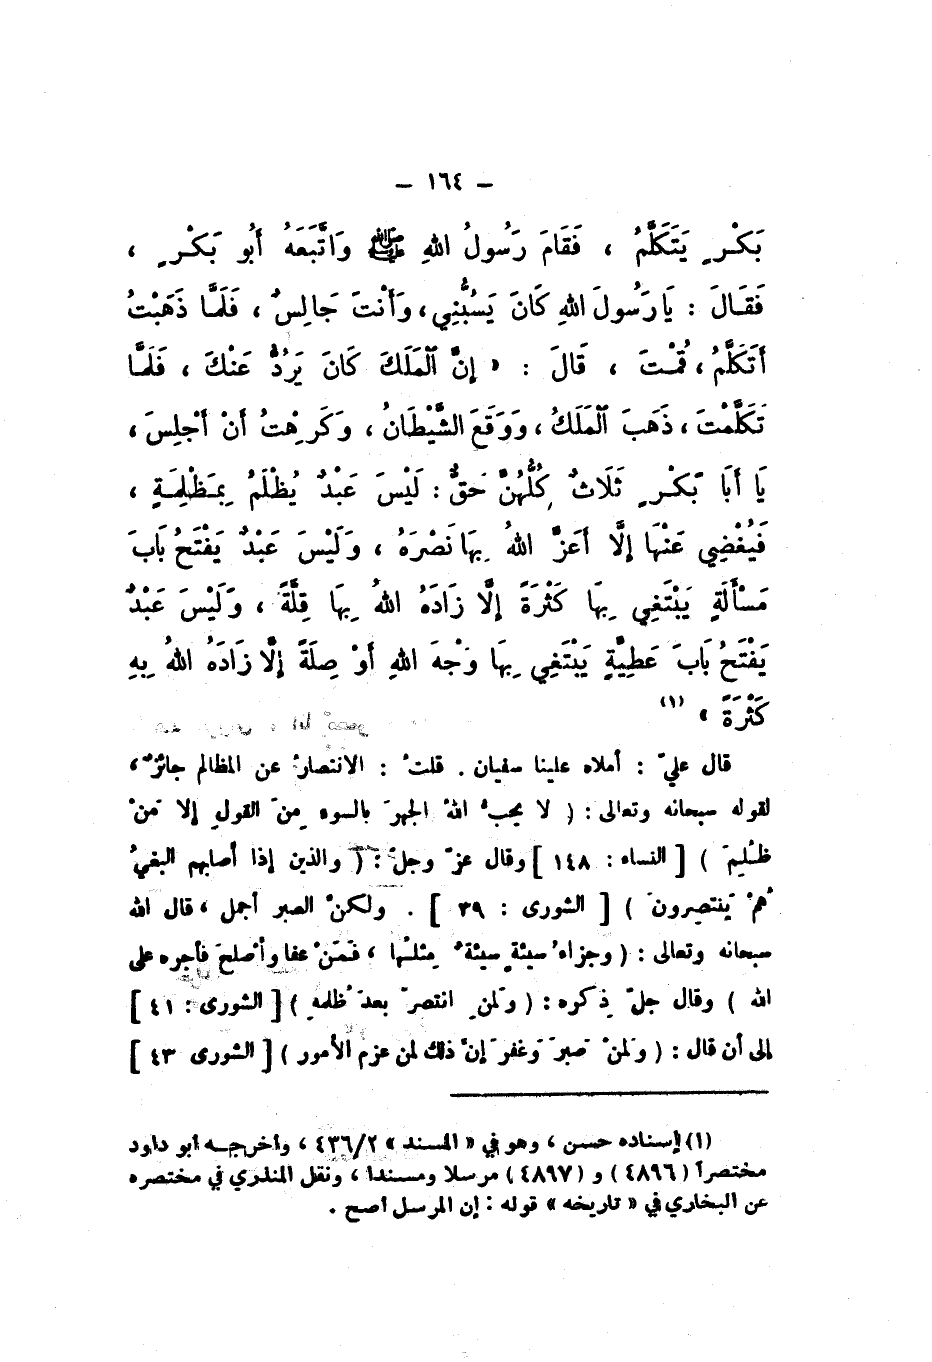 – ١٦٤ –
بَكْرٍ يَتَكَلَّمُ ، فَقَامَ رَسُولُ اللهِ ﷺ وَاتَّبَعَهُ أَبُو بَكْرٍ ،
فَقَالَ : يَا رَسُولَ اللهِ كَانَ يَسُبُّنِي ، وَأَنْتَ جَالِسٌ ، فَلَمَّا ذَهَبْتُ
أَتَكَلَّمُ ، قُمْتَ ، قَالَ : « إِنَّ الْمَلَكَ كَانَ يَرُدُّ عَنْكَ ، فَلَمَّا
تَكَلَّمْتَ ، ذَهَبَ الْمَلَكُ ، وَوَقَعَ الشَّيْطَانُ ، وَكَرِهْتُ أَنْ أَجْلِسَ ،
يَا أَبَا بَكْرٍ ثَلَاثٌ كُلُّهُنَّ حَقٌّ : لَيْسَ عَبْدٌ يُظْلَمُ بِمَظْلِمَةٍ ،
فَيُغْضِي عَنْهَا إِلَّا أَعَزَّ اللهُ بِهَا نَصْرَهُ ، وَلَيْسَ عَبْدٌ يَفْتَحُ بَابَ
مَسْأَلَةٍ يَبْتَغِي بِهَا كَثْرَةً إِلَّا زَادَهُ اللهُ بِهَا قِلَّةً ، وَلَيْسَ عَبْدٌ
يَفْتَحُ بَابَ عَطِيَّةٍ يَبْتَغِي بِهَا وَجْهَ اللهِ أَوْ صِلَةً إِلَّا زَادَهُ اللهُ بِهِ
كَثْرَةً » (١)
قال عليّ : أملاه علينا سفيان . قلتُ : الانتصارُ عن المظالم جائزٌ ،
لقوله سبحانه وتعالى : ( لا يحبُّ اللهُ الجهرَ بالسوء مِنَ القولِ إلا مَنْ
ظُلِمَ ) [ النساء : ١٤٨ ] وقال عزّ وجلّ : ( والذين إذا أصابهم البغيُ
هُمْ يَنتصِرونَ ) [ الشورى : ٣٩ ] . ولكنْ الصبر أجمل ، قال الله
سبحانه وتعالى : ( وجزاءُ سيئةٍ سيئةٌ مِثلُها ، فمَنْ عفا وأصْلحَ فأجره على
الله ) وقال جلّ ذِكره : ( وَلمنِ انتصرَ بعدَ ظُلمهِ ) [ الشورى : ٤١ ]
إلى أن قال : ( وَلمنْ صَبرَ وَغفرَ إنْ ذلك لمن عزم الأمور ) [ الشورى ٤٣ ]
(١) إسناده حسن ، وهو في « المسند » ٤٣٦/٢ ، وأخرجه أبو داود
مختصراً ( ٤٨٩٦ ) و ( ٤٨٩٧ ) مرسلا ومسندا ، ونقل المنذري في مختصره
عن البخاري في « تاريخه » قوله : إن المرسل أصح .